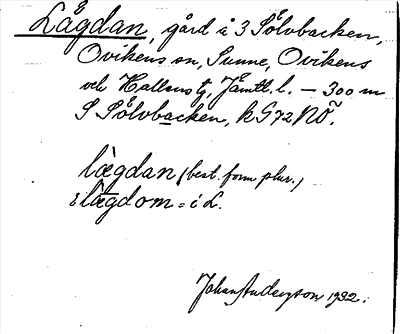 Lågdan, gård å 3 Sölvbacken,
Ovikens sn, Sunne, Ovikens
och Hallens tg, Jämtl. l. – 300 m
S Sölvbacken, k G 72 NÖ.
lægdan (best. form plur.)
i lægdom = i L.
Johan Anderzon 1932.